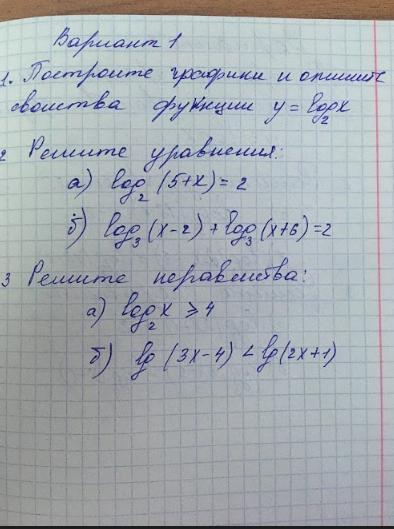 Вариант 1
1. Постройте графики и опишите
свойства функции y = log₂x
2 Решите уравнения:
а) log₂(5+x) = 2
б) log₃(x-2) + log₃(x+6) = 2
3 Решите неравенства:
а) log₂x ⩾ 4
б) lg (3x-4) < lg(2x+1)